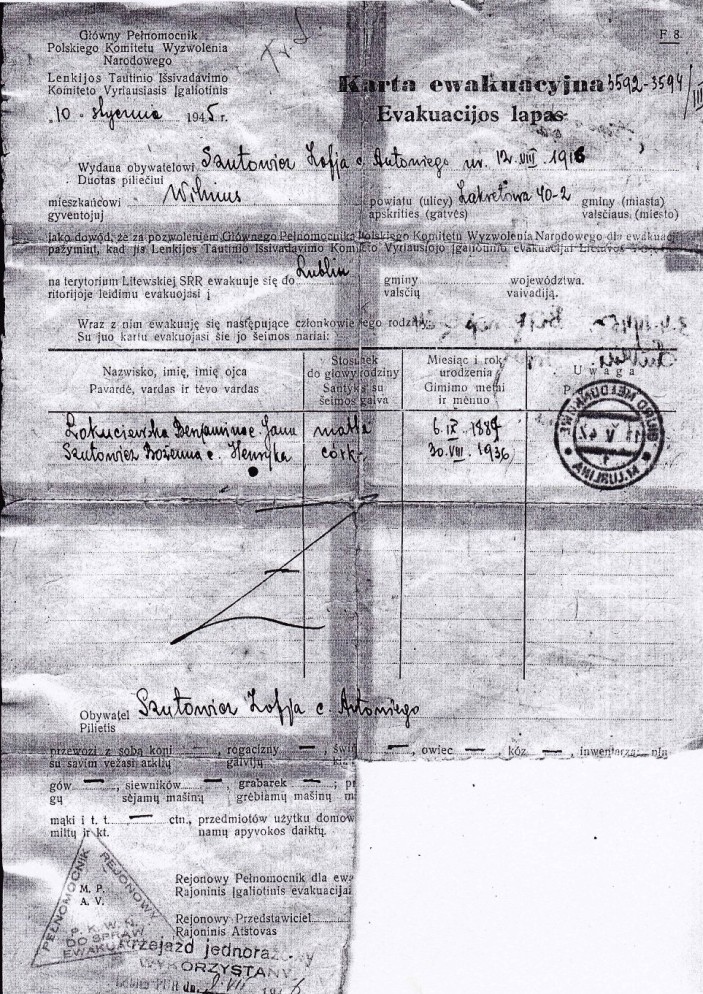 Główny Pełnomocnik
Polskiego Komitetu Wyzwolenia
Narodowego
Lenkijos Tautinio Išsivadavimo
Komiteto Vyriausiasis Įgaliotinis
10 stycznia 1945 r.
F 8
Karta ewakuacyjna 3592-3594/III
Evakuacijos lapas
Wydana obywatelowi Szutowicz Zofja c. Antoniego ur. 12.VIII.1916
Duotas piliečiui
mieszkańcowi Wilnius powiatu (ulicy) Zakretowa 40-2 gminy (miasta)
gyventojuj apskrities (gatvės) valsčiaus (miesto)
jako dowód, że za pozwoleniem Głównego Pełnomocnika Polskiego Komitetu Wyzwolenia Narodowego dla ewakuacji
pažymint, kad jis Lenkijos Tautinio Išsivadavimo Komiteto Vyriausiojo Įgaliotinio evakuacijai Lietuvos
na terytorium Litewskiej SRR ewakuuje się do Lublin gminy województwa.
ritorijoje leidimu evakuojasi į valsčių vaivadiją.
Wraz z nim ewakuuję się następujące członkowie jego rodziny
Su juo kartu evakuojasi šie jo šeimos nariai:
Nazwisko, imię, imię ojca
Pavardė, vardas ir tėvo vardas
Stosunek
do głowy rodziny
Santykis su
šeimos galva
Miesiąc i rok
urodzenia
Gimimo metai
ir mėnuo
Uwaga
Żokuciewska Benjamina c. Jana matka 6.IX.1887
Szutowicz Bożenna c. Henryka córka 30.VIII.1936
Obywatel Szutowicz Zofja c. Antoniego
Pilietis
przewozi z sobą koni —, rogacizny —, świń —, owiec —, kóz —, inwentarza: płu
su savim vežasi arklių galvijų
gów —, siewników —, grabarek —;
gų sėjamų mašinų grėbiamų mašinų
mąki i t. t. — ctn., przedmiotów użytku domow
miltų ir kt. namų apyvokos daiktų.
PEŁNOMOCNIK REJONOWY
M. P.
A. V.
P. K. W. N.
DO SPRAW
EWAKUACJI
Rejonowy Pełnomocnik dla ewa
Rajoninis Įgaliotinis evakuacijai
Rejonowy Przedstawiciel
Rajoninis Atstovas
Przejazd jednorazowy
WYKORZYSTANY